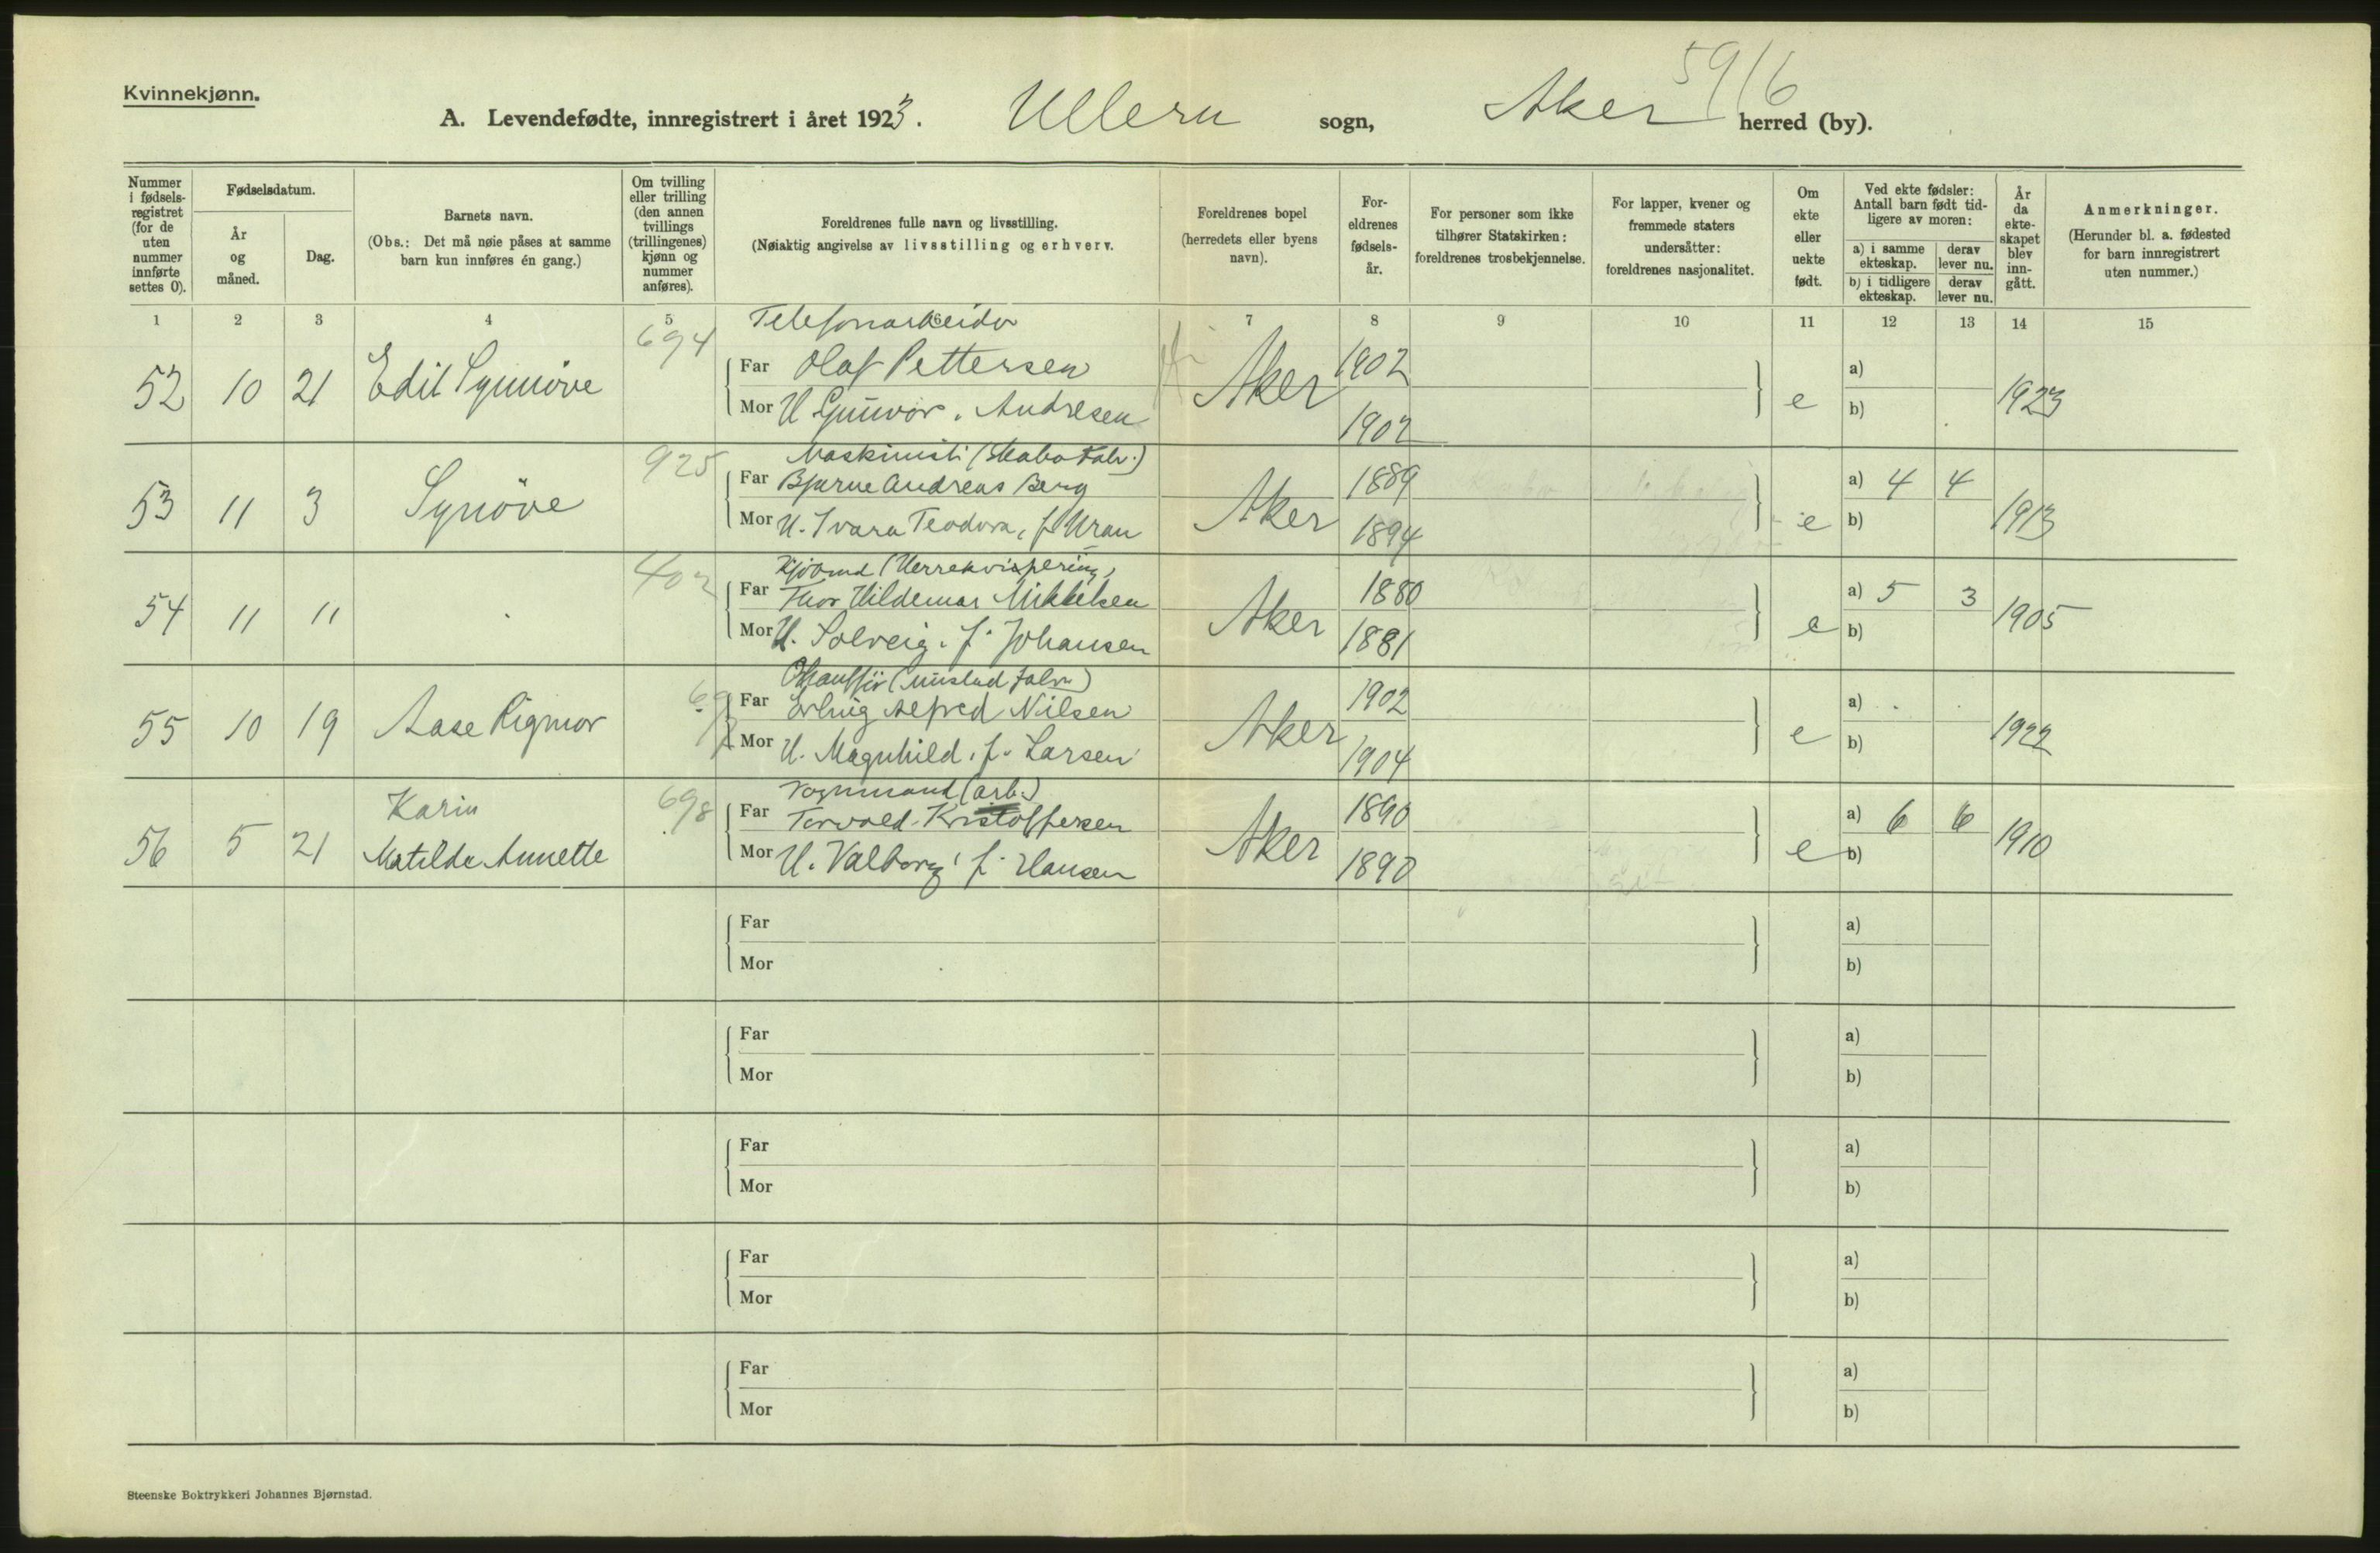 Kvinnekjønn.
5916
A. Levendefødte, innregistrert i året 1923. Ullern sogn, Aker herred (by).
Nummer i fødsels-registret (for de uten nummer innførte settes 0).
Fødselsdatum.
År og måned.
Dag.
Barnets navn.
(Obs.: Det må nøie påses at samme barn kun innføres én gang.)
Om tvilling eller trilling (den annen tvillings (trillingenes) kjønn og nummer anføres).
Foreldrenes fulle navn og livsstilling.
(Nøiaktig angivelse av livsstilling og erhverv.
Foreldrenes bopel (herredets eller byens navn).
For-eldrenes fødsels-år.
For personer som ikke tilhører Statskirken: foreldrenes trosbekjennelse.
For lapper, kvener og fremmede staters undersåtter: foreldrenes nasjonalitet.
Om ekte eller uekte født.
Ved ekte fødsler: Antall barn født tid-ligere av moren:
a) i samme ekteskap.
derav lever nu.
b) i tidligere ekteskap.
derav lever nu.
År da ekte-skapet blev inn-gått.
Anmerkninger.
(Herunder bl. a. fødested for barn innregistrert uten nummer.)
1 2 3 4 5 6 7 8 9 10 11 12 13 14 15
694 Telefonarbeider
Far Olaf Pettersen 1902 a)
52 10 21 Edit Synnöve Aker e 1923
Mor H. Gunvor. Andresen 1902 b)
925 Maskinist (Skabo Fabr.)
Far Bjarne Andreas Berg 1889 a) 4 4
53 11 3 Synöve Aker e 1913
Mor H. Ivara Teodora, f. Uran 1894 b)
402 (Herrekvipering)
Far Thor Hildemar Mikkelsen 1880 a) 5 3
54 11 11 Aker e 1905
Mor H. Solveig. f. Johansen 1881 b)
(Mustad Fabr.)
Far Erling Alfred Nilsen 1902 a)
55 10 19 Aase Rigmor Aker e 1922
Mor H. Magnhild. f. Larsen 1904 b)
698 Vognmand (arb.)
Karin
Far Torvald Kristoffersen 1890 a) 6 6
56 5 21 Matilde Annette Aker e 1910
Mor H. Valborg f. Hansen 1890 b)
Far a)
Mor b)
Far a)
Mor b)
Far a)
Mor b)
Far a)
Mor b)
Far a)
Mor b)
Steenske Boktrykkeri Johannes Bjørnstad.